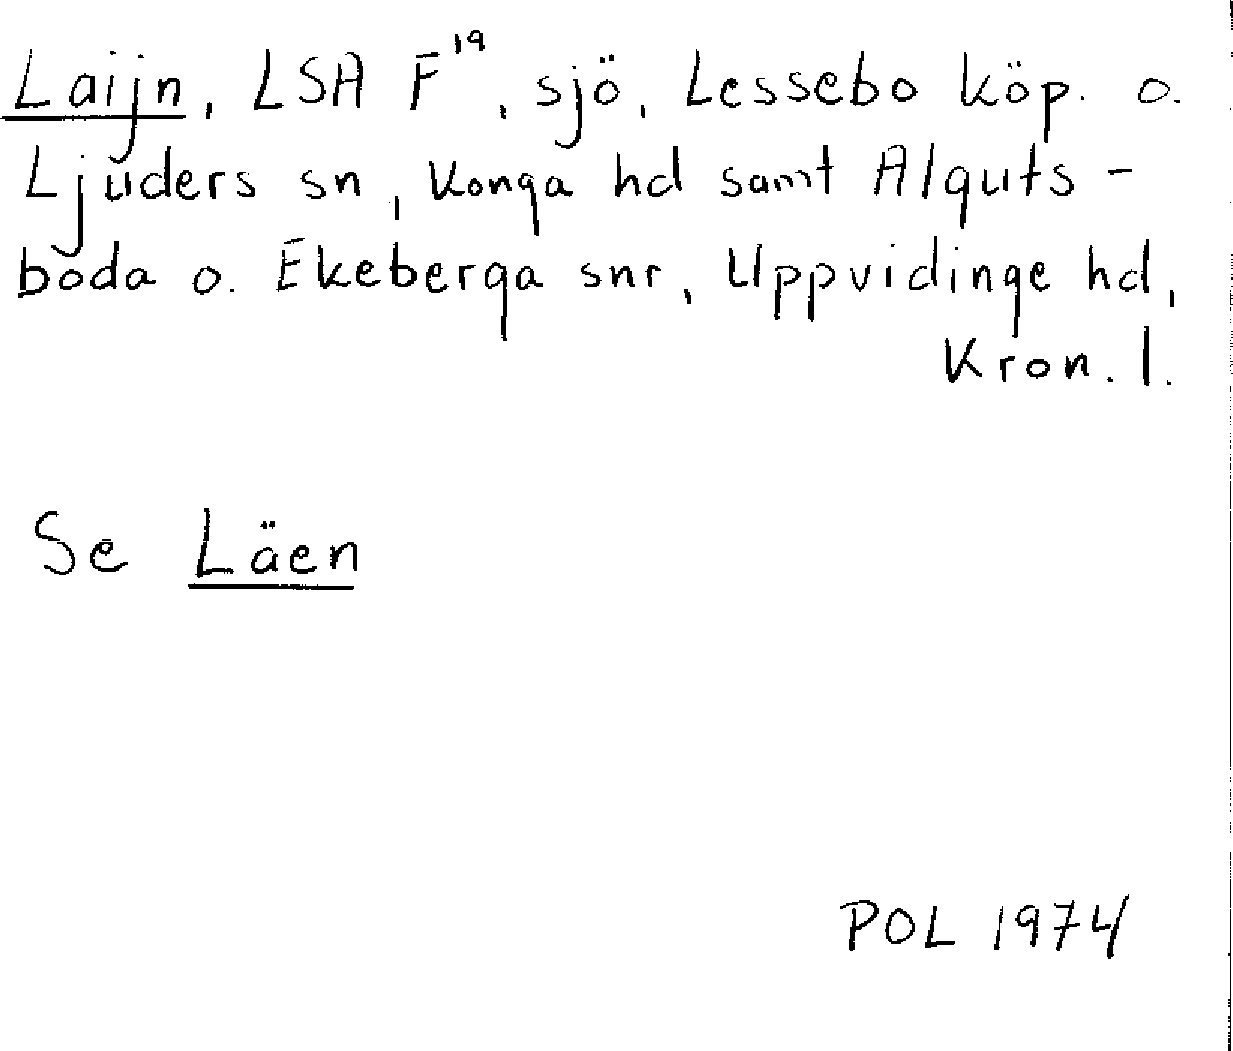 Laijn, LSA F¹⁹, sjö, Lessebo köp. o.
Ljuders sn, Konga hd samt Älguts-
boda o. Ekeberga snr, Uppvidinge hd,
Kron. l.
Se Läen
POL 1974